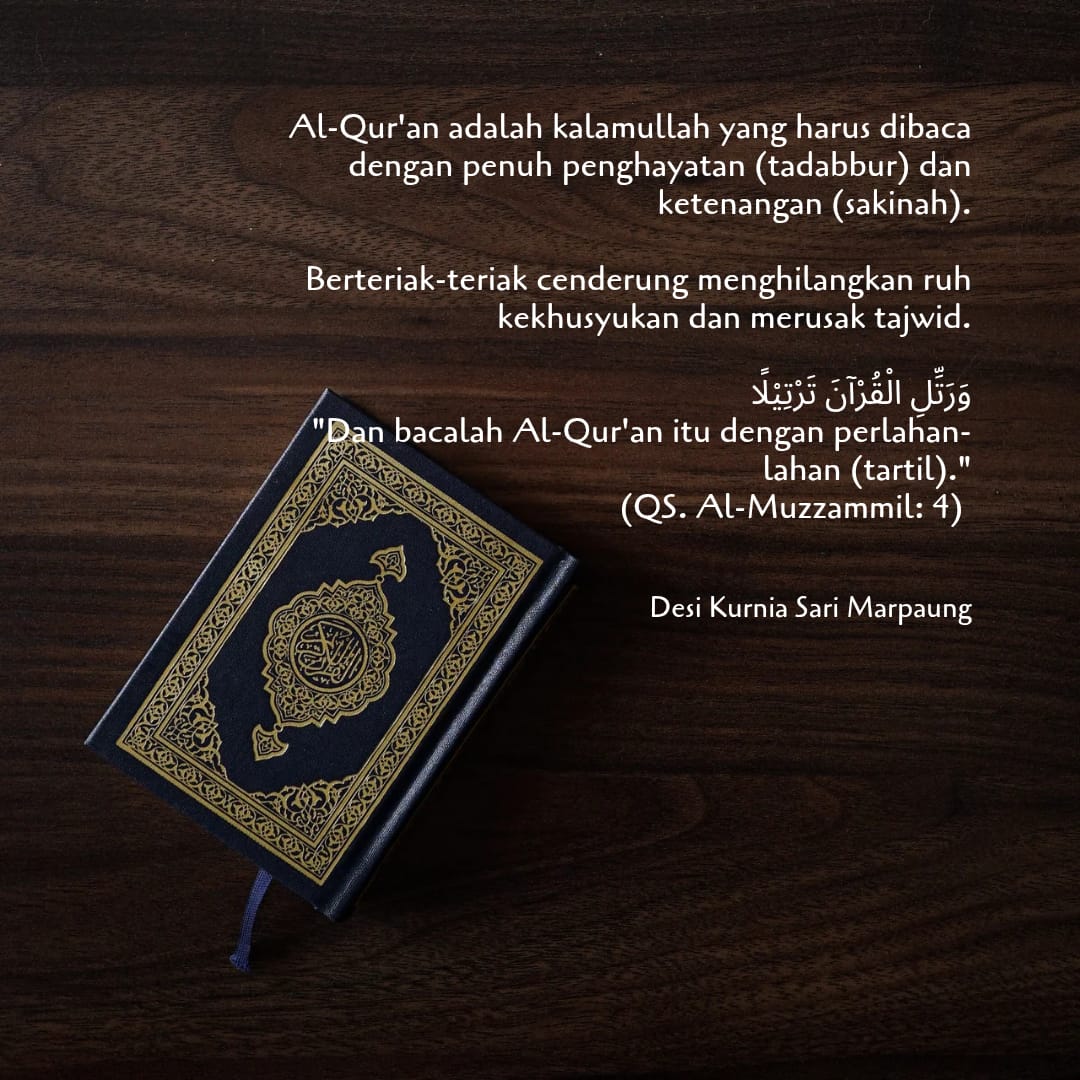 Al-Qur'an adalah kalamullah yang harus dibaca
dengan penuh penghayatan (tadabbur) dan
ketenangan (sakinah).
Berteriak-teriak cenderung menghilangkan ruh
kekhusyukan dan merusak tajwid.
وَرَتِّلِ الْقُرْآنَ تَرْتِيْلًا
"Dan bacalah Al-Qur'an itu dengan perlahan-
lahan (tartil)."
(QS. Al-Muzzammil: 4)
Desi Kurnia Sari Marpaung